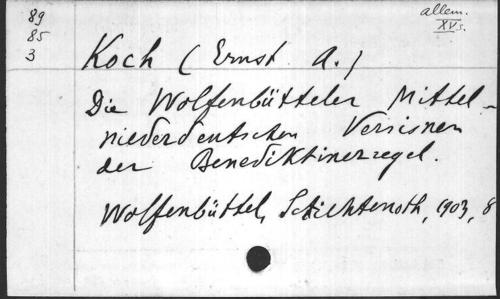 89
85
3
allem.
XVs.
Koch (Ernst A.)
Die Wolfenbütteler Mittel-
niederdeutschen Versionen
der Benediktinerregel.
Wolfenbüttel, 1903, 8